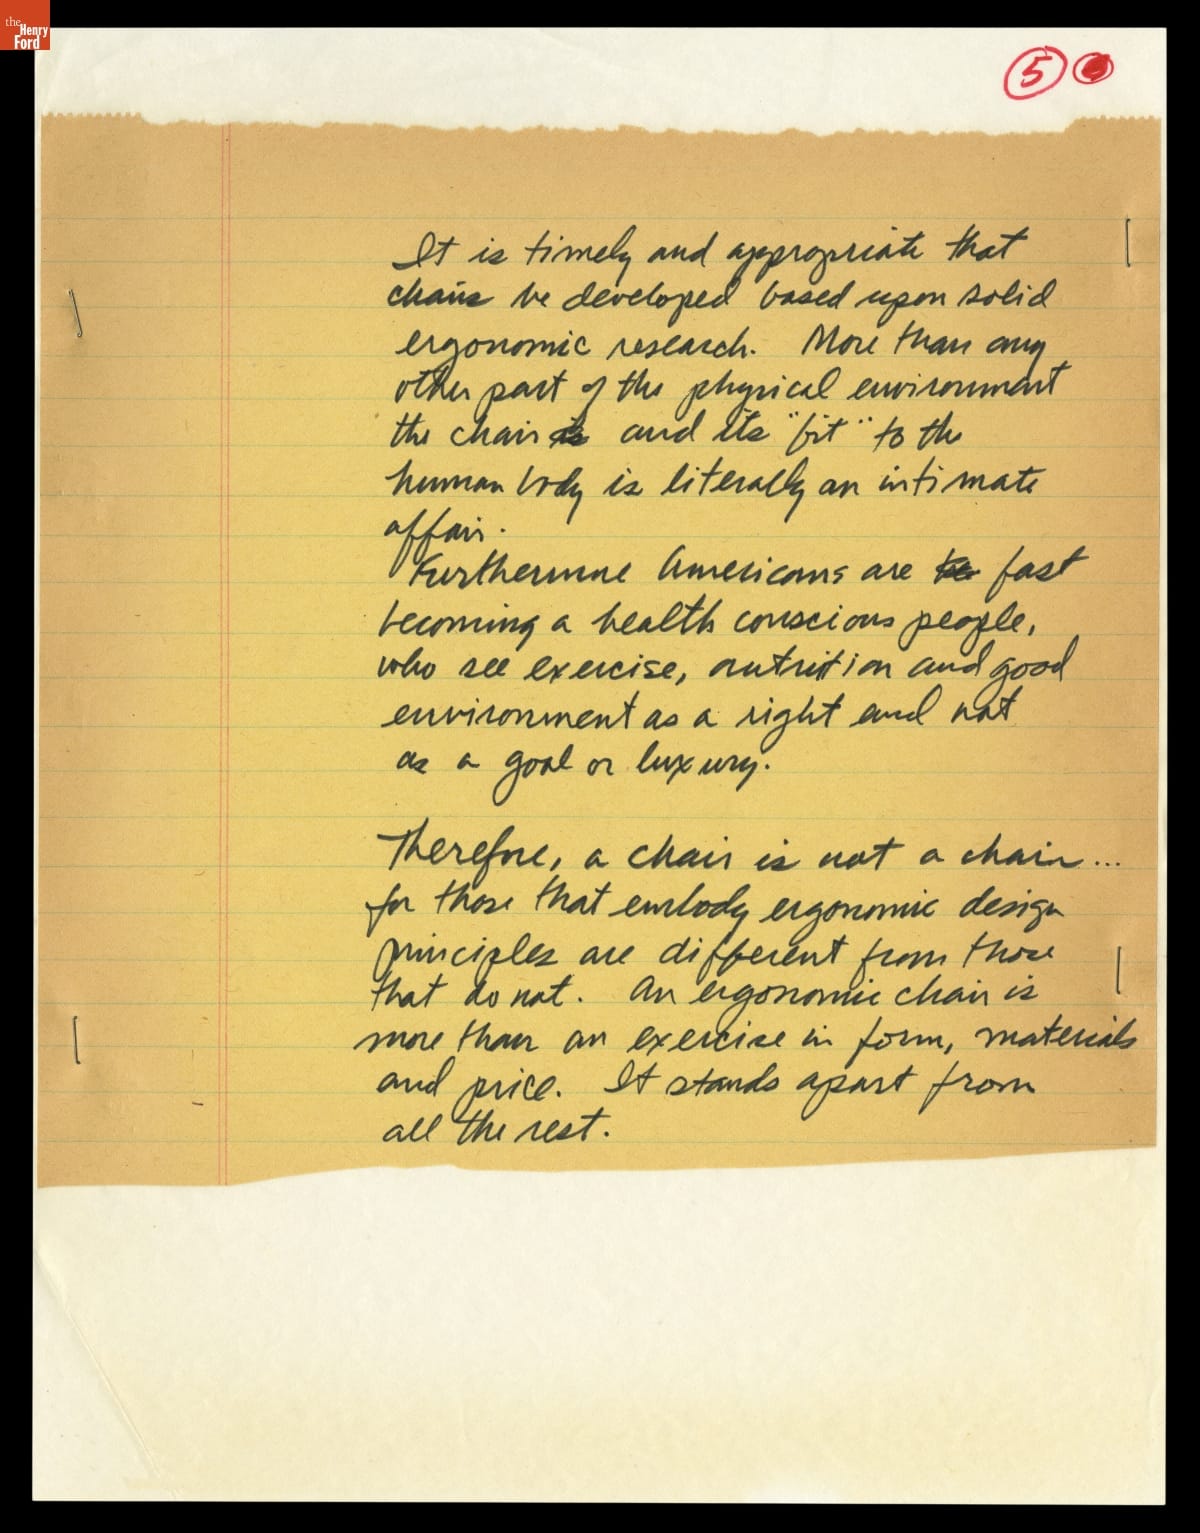 the
Henry
Ford
5
It is timely and appropriate that
chairs be developed based upon solid
ergonomic research. More than any
other part of the physical environment
the chair is and its "fit" to the
human body is literally an intimate
affair.
Furthermore Americans are be fast
becoming a health conscious people,
who see exercise, nutrition and good
environment as a right and not
as a goal or luxury.
Therefore, a chair is not a chair...
for those that embody ergonomic design
principles are different from those
that do not. An ergonomic chair is
more than an exercise in form, materials
and price. It stands apart from
all the rest.